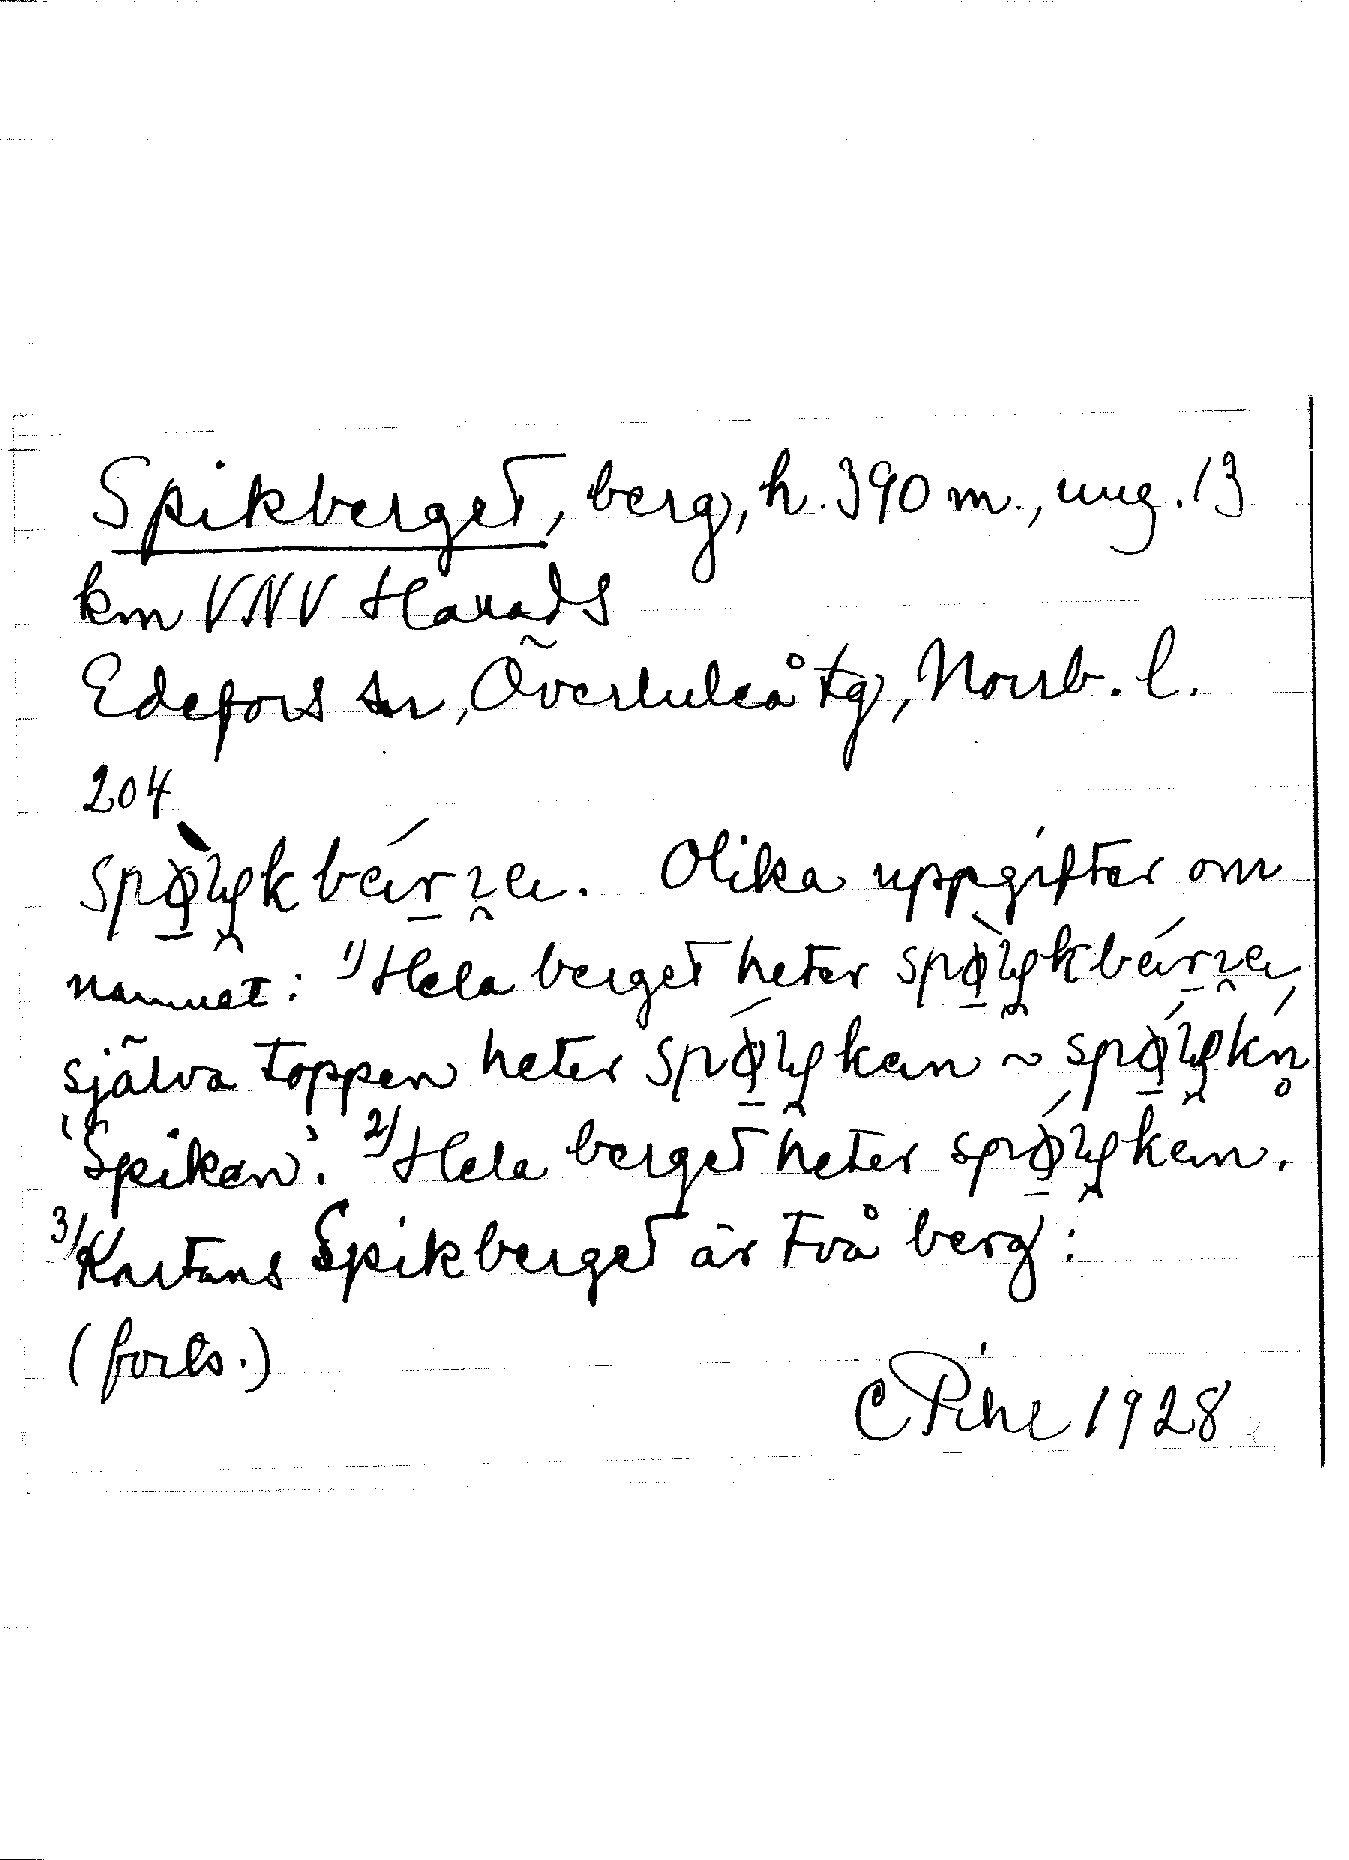 Spikberget, berg, h. 390 m., ung. 13
km VNV Harads
Edefors sn, Överluleå tg, Norrb. l.
204
Olika uppgifter om
namnet: 1) Hela berget heter
själva toppen heter ~
'Spiken'. 2) Hela berget heter
3) Kartans Spikberget är två berg:
(forts.)
C Pihl 1928